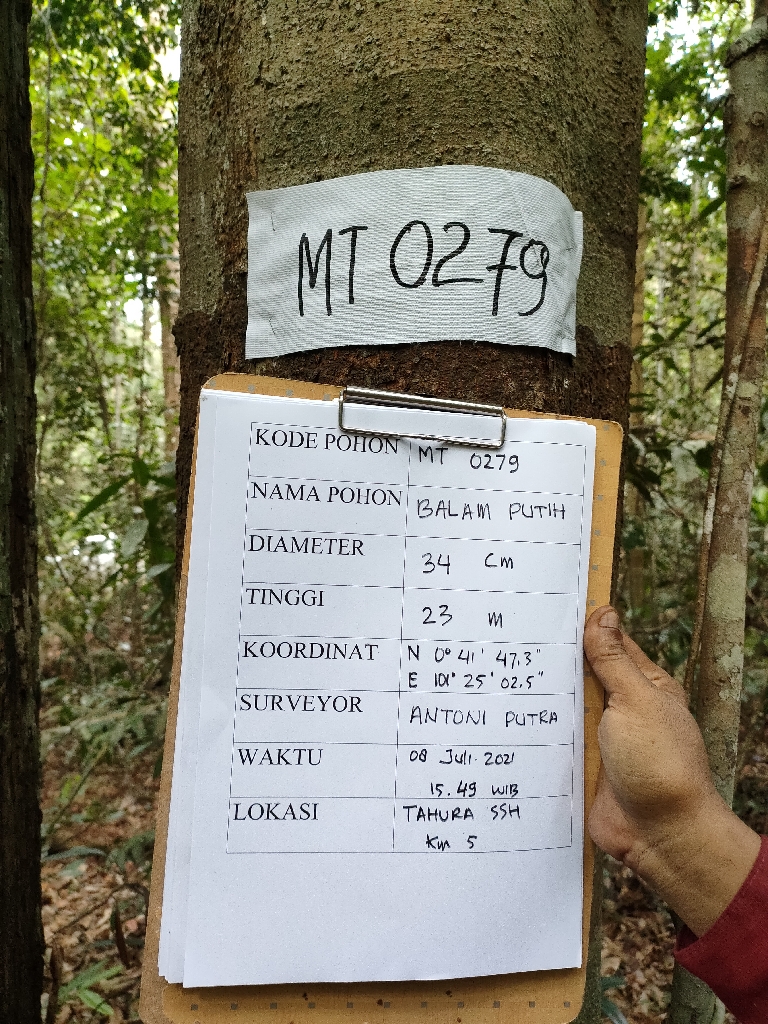 MT 0279
KODE POHON MT 0279
NAMA POHON BALAM PUTIH
DIAMETER 34 cm
TINGGI 23 m
KOORDINAT N 0° 41' 47.3"
E 101° 25' 02.5"
SURVEYOR ANTONI PUTRA
WAKTU 08 Juli 2021
15.49 WIB
LOKASI TAHURA SSH
Km 5